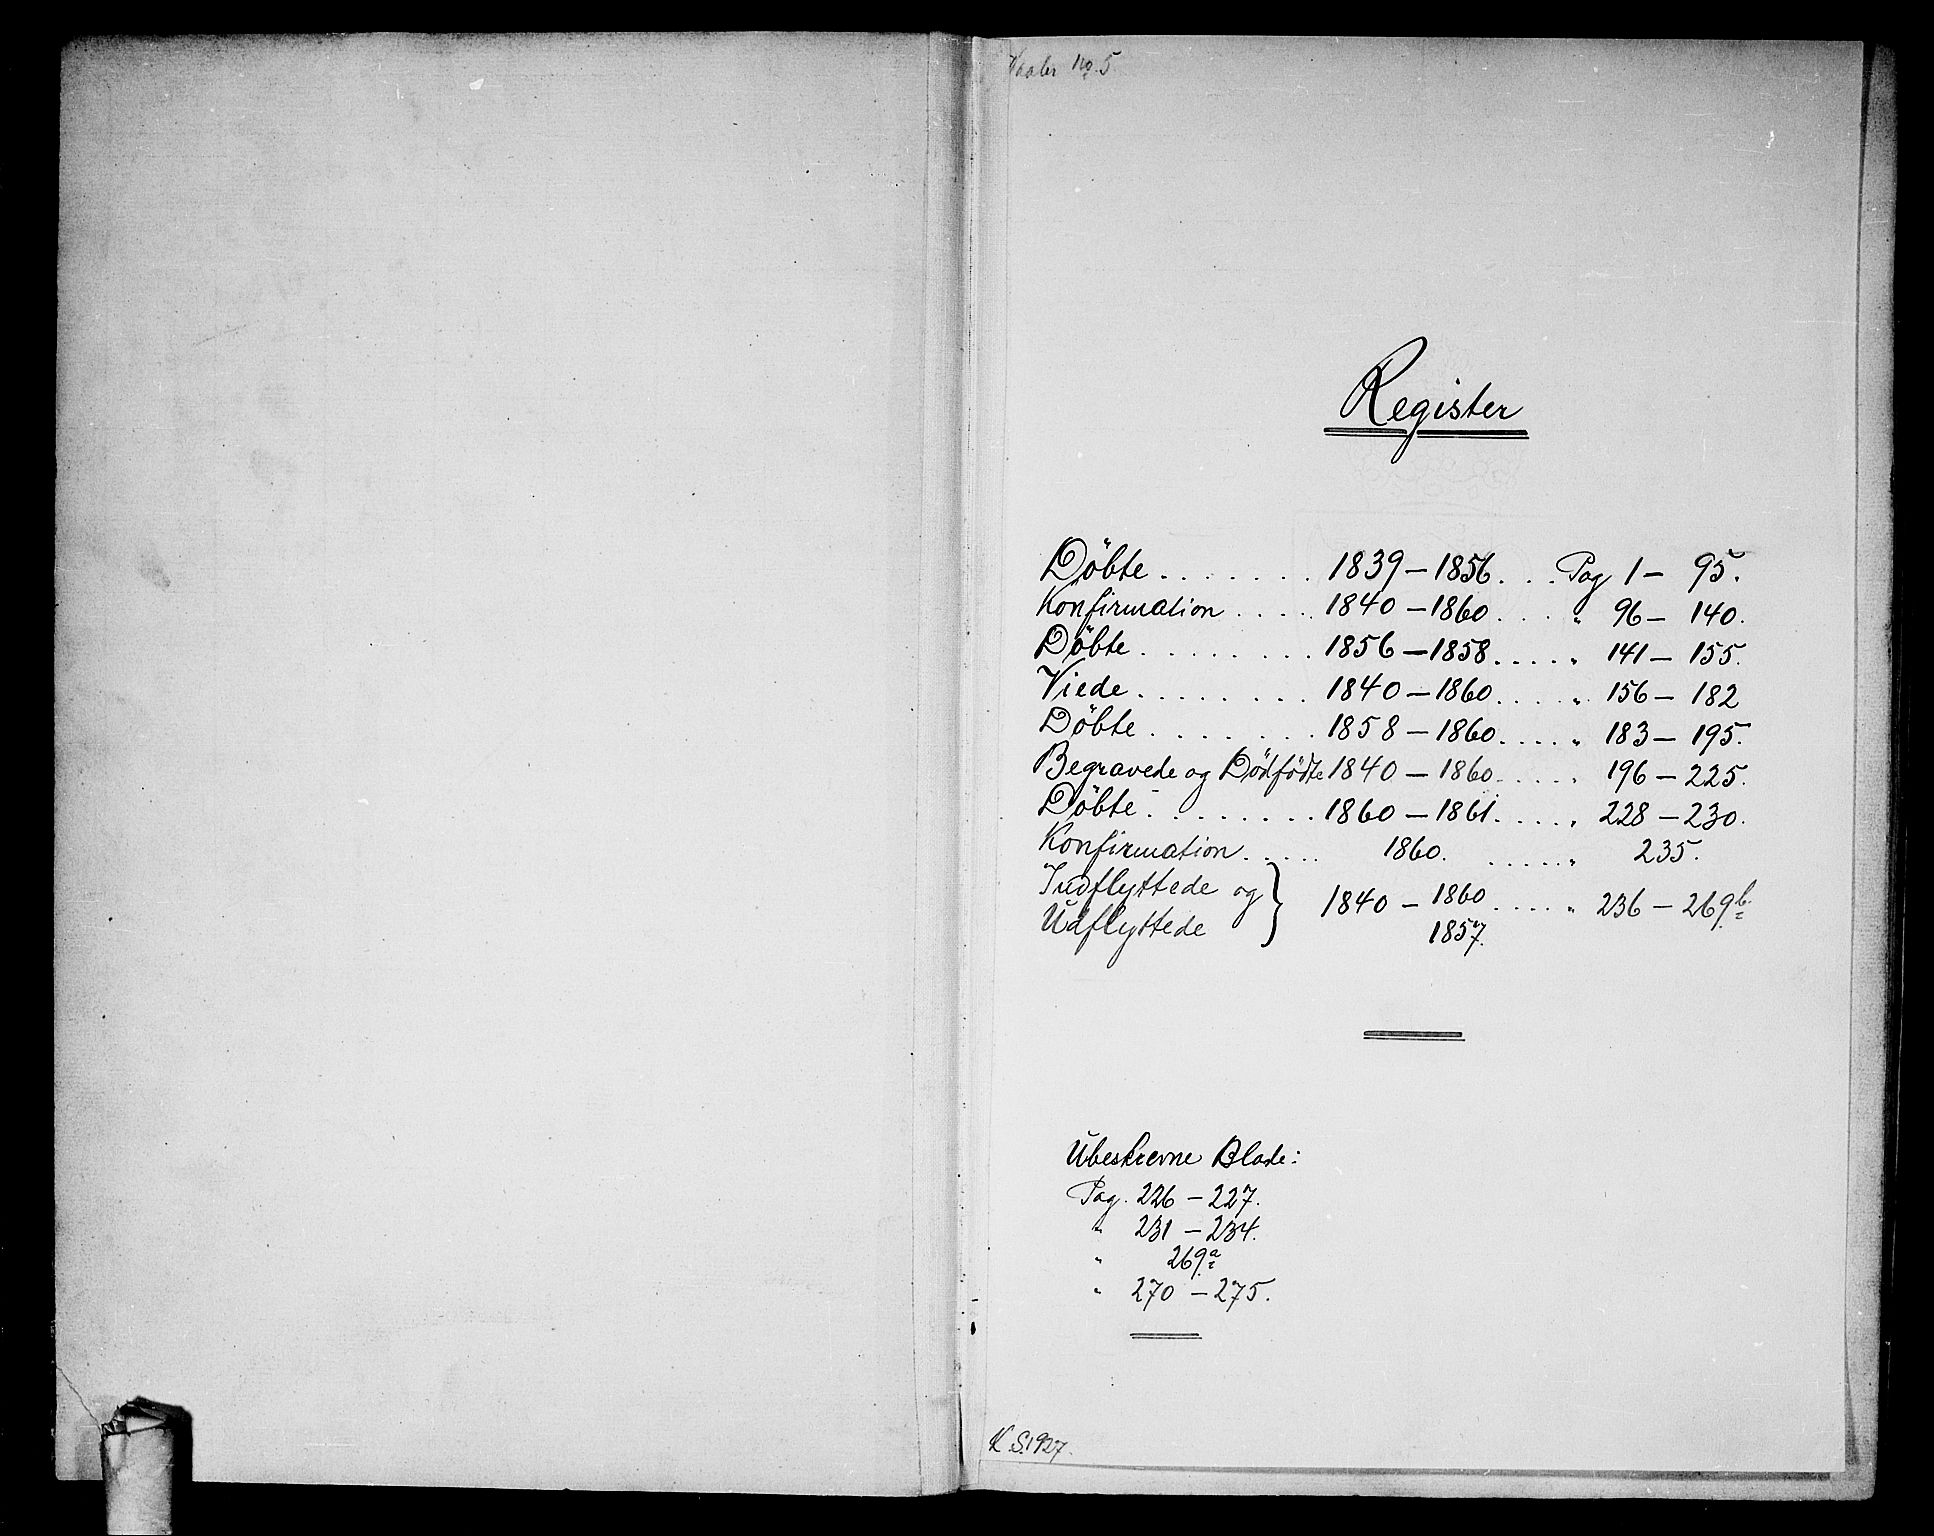 Vaaler No. 5
Register
Döbte . . . . . . . 1839 – 1856 . . . Pag 1 – 95.
Konfirmation . . . . 1840 – 1860 . . . " 96 – 140.
Döbte . . . . . . . . 1856 – 1858 . . . . . " 141 – 155.
Viede . . . . . . . . 1840 – 1860 . . . . " 156 – 182
Döbte . . . . . . . 1858 – 1860 . . . . . " 183 – 195.
Begravede og Dödfödte 1840 – 1860 . . . . . 196 – 225.
Döbte . . . . . . . . 1860 – 1861 . . . . . " 228 – 230.
Konfirmation . . . . . 1860. . . . . . . " 235.
Indflyttede og } 1840 – 1860 . . . . . " 236 – 269b.
Udflyttede 1857.
Ubeskrevne Blade:
Pag. 226 – 227.
" 231 – 234.
" 269a
" 270 – 275.
K.S. 1927.